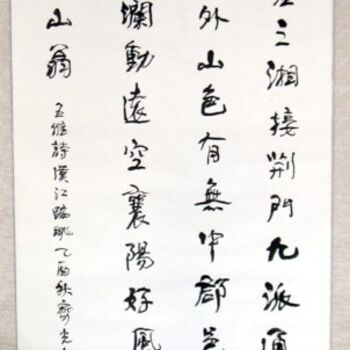 三湘接荆門九派通
外山色有無中郡邑
瀾動遠空襄陽好風
山翁
王維詩漢江臨眺乙酉秋齊光